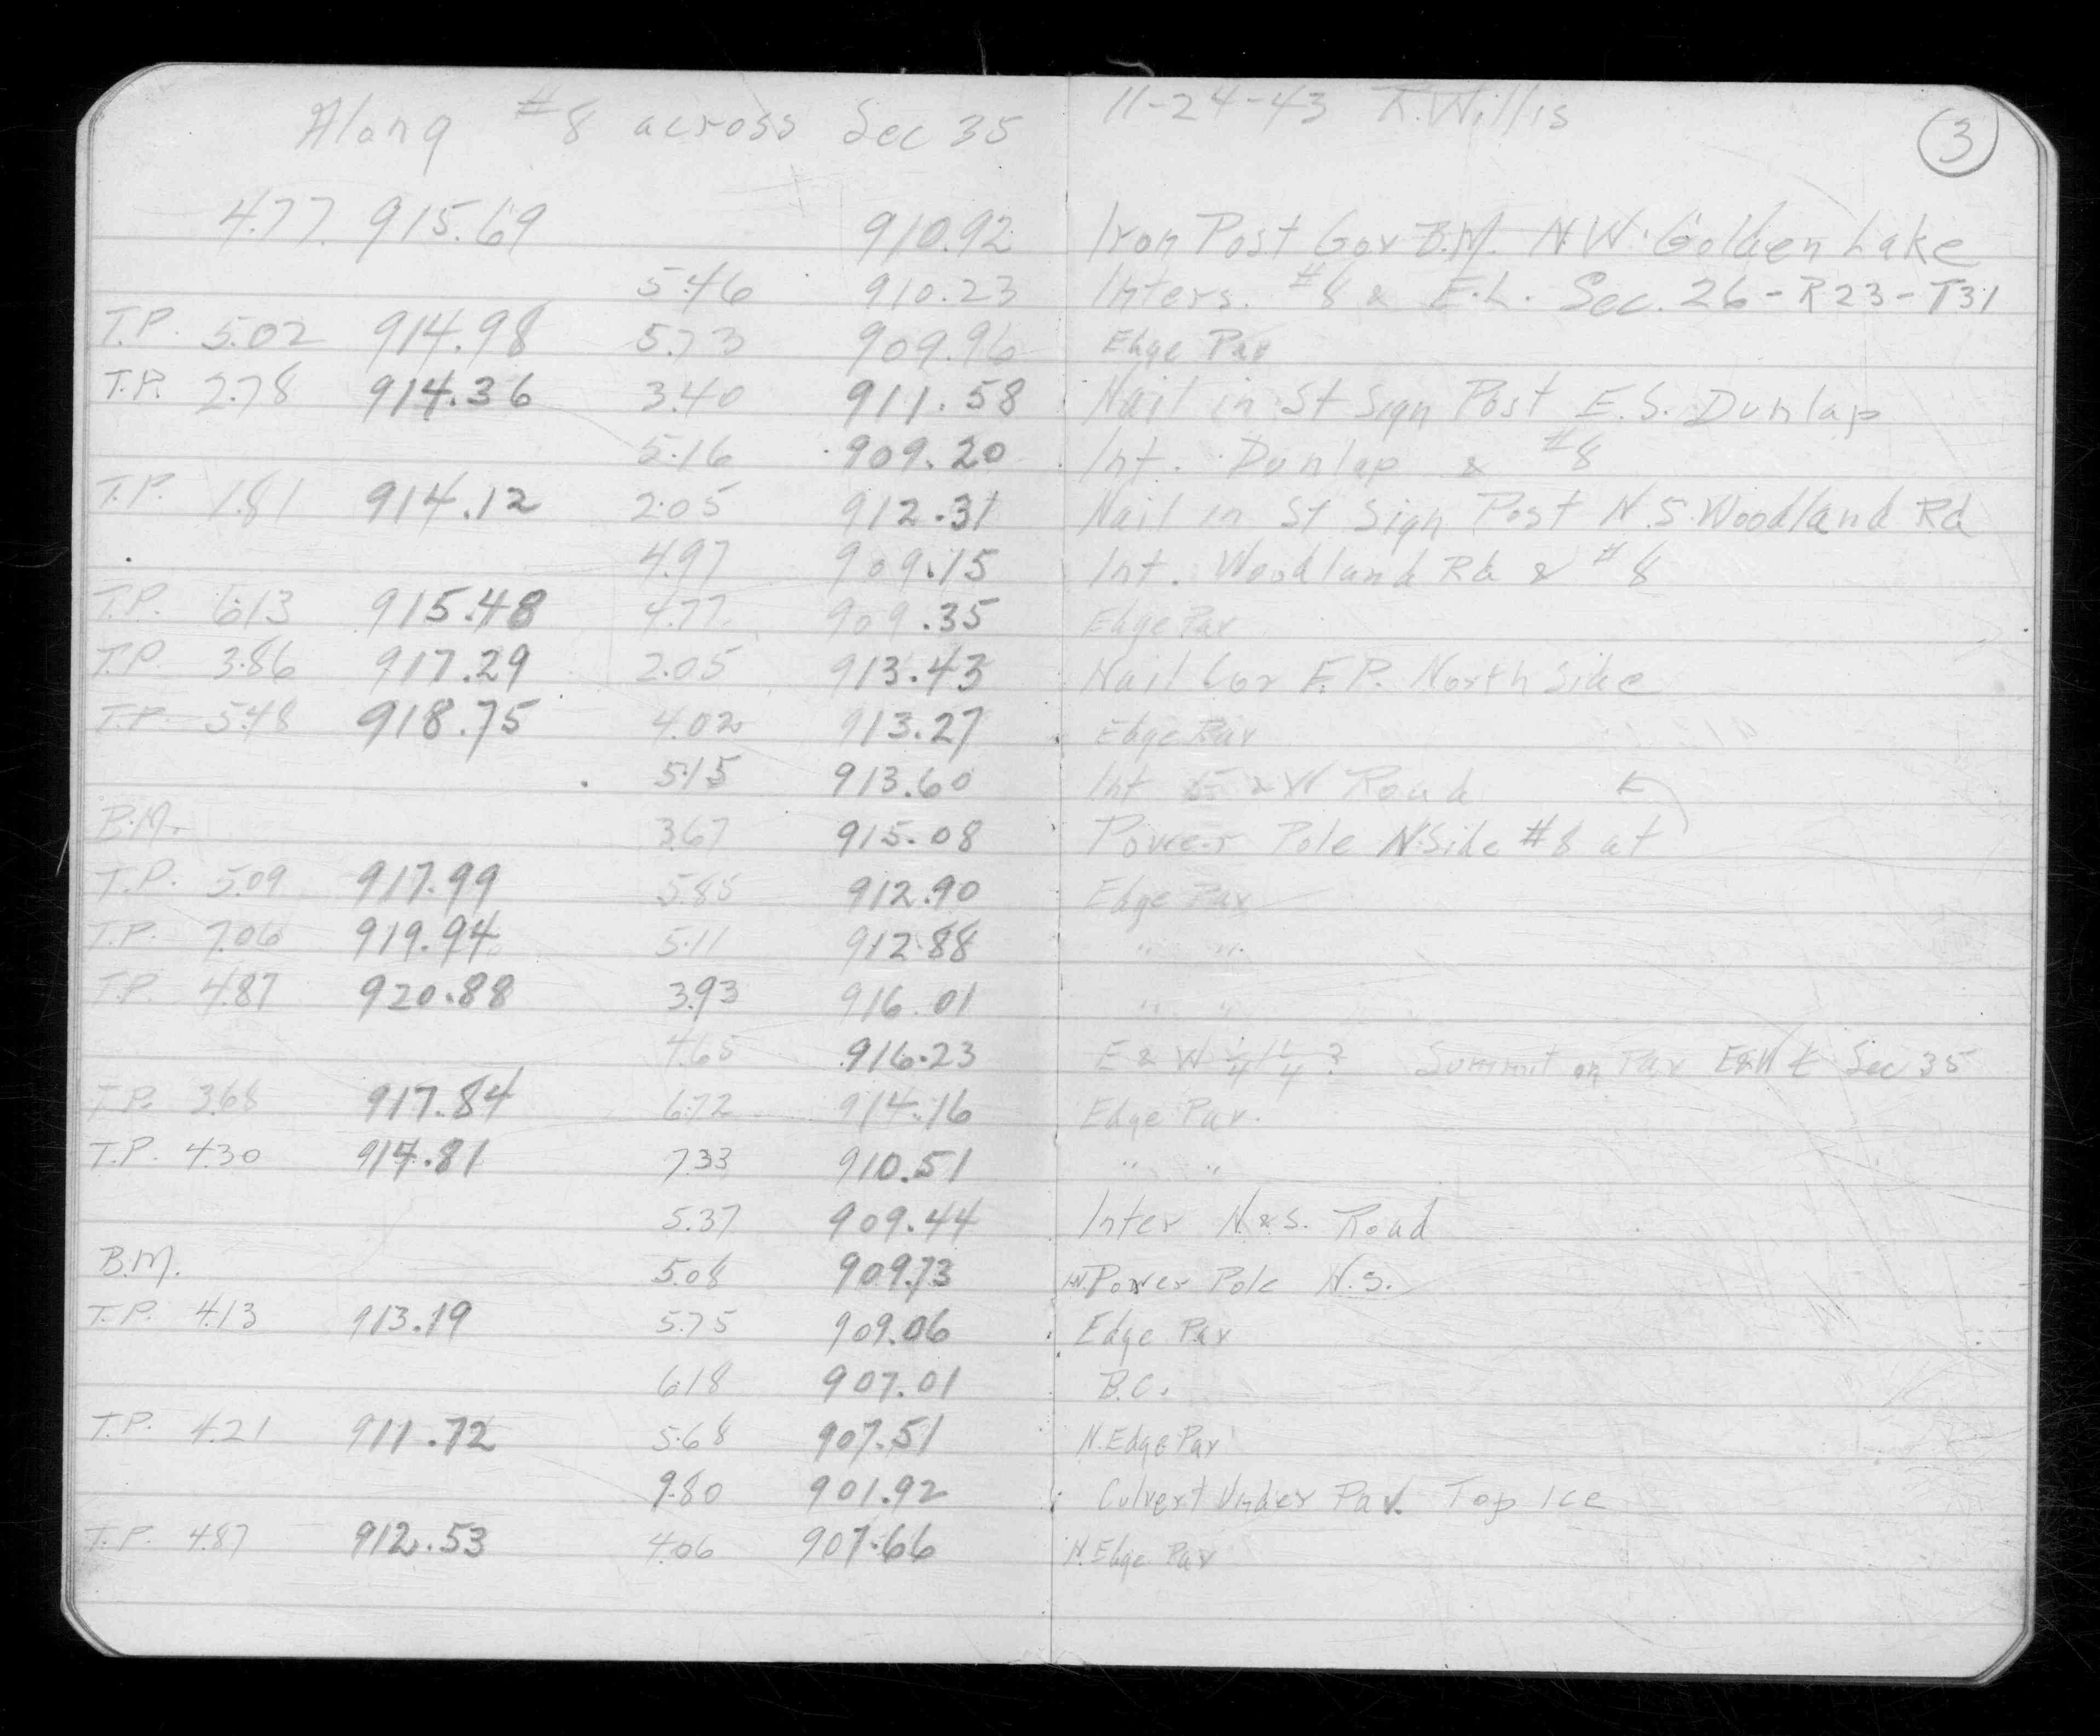 Along #8 across Sec 35 11-24-43 R. Willis 3
4.77 915.69 910.92 Iron Post Gov B.M. N.W. Golden Lake
5.46 910.23 Inters. #8 & E.L. Sec. 26-R23-T31
T.P. 5.02 914.98 5.73 909.96 Edge Pav
T.P. 2.78 914.36 3.40 911.58 Nail in St Sign Post E.S. Dunlap
5.16 909.20 Int. Dunlap & #8
T.P. 1.81 914.12 2.05 912.31 Nail in St Sign Post N.S. Woodland Rd
4.97 909.15 Int. Woodland Rd & #8
T.P. 6.13 915.48 4.77 909.35 Edge Pav
T.P. 3.86 917.29 2.05 913.43 Nail Cor F.P. North Side
T.P. 5.48 918.75 4.02 913.27 Edge Pav
5.15 913.60 Int E & W Road
B.M. 3.67 915.08 Power Pole N Side #8 at
T.P. 5.09 917.99 5.85 912.90 Edge Pav
T.P. 7.06 919.94 5.11 912.88 " "
T.P. 4.87 920.88 3.93 916.01 " "
4.65 916.23 E & W 1/4 1/4 ? Summit on Pav E&W ¢ Sec 35
T.P. 3.68 917.84 6.72 914.16 Edge Pav.
T.P. 4.30 914.81 7.33 910.51 " "
5.37 909.44 Inter N & S. Road
B.M. 5.08 909.73 Power Pole N.S.
T.P. 4.13 913.19 5.75 909.06 Edge Pav
6.18 907.01 B.C.
T.P. 4.21 911.72 5.68 907.51 N. Edge Pav
9.80 901.92 Culvert Under Pav. Top Ice
T.P. 4.87 912.53 4.06 907.66 N. Edge Pav